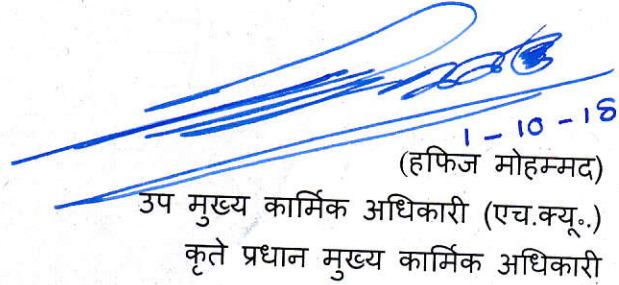 1-10-18
(हफिज मोहम्मद)
उप मुख्य कार्मिक अधिकारी (एच.क्यू.)
कृते प्रधान मुख्य कार्मिक अधिकारी